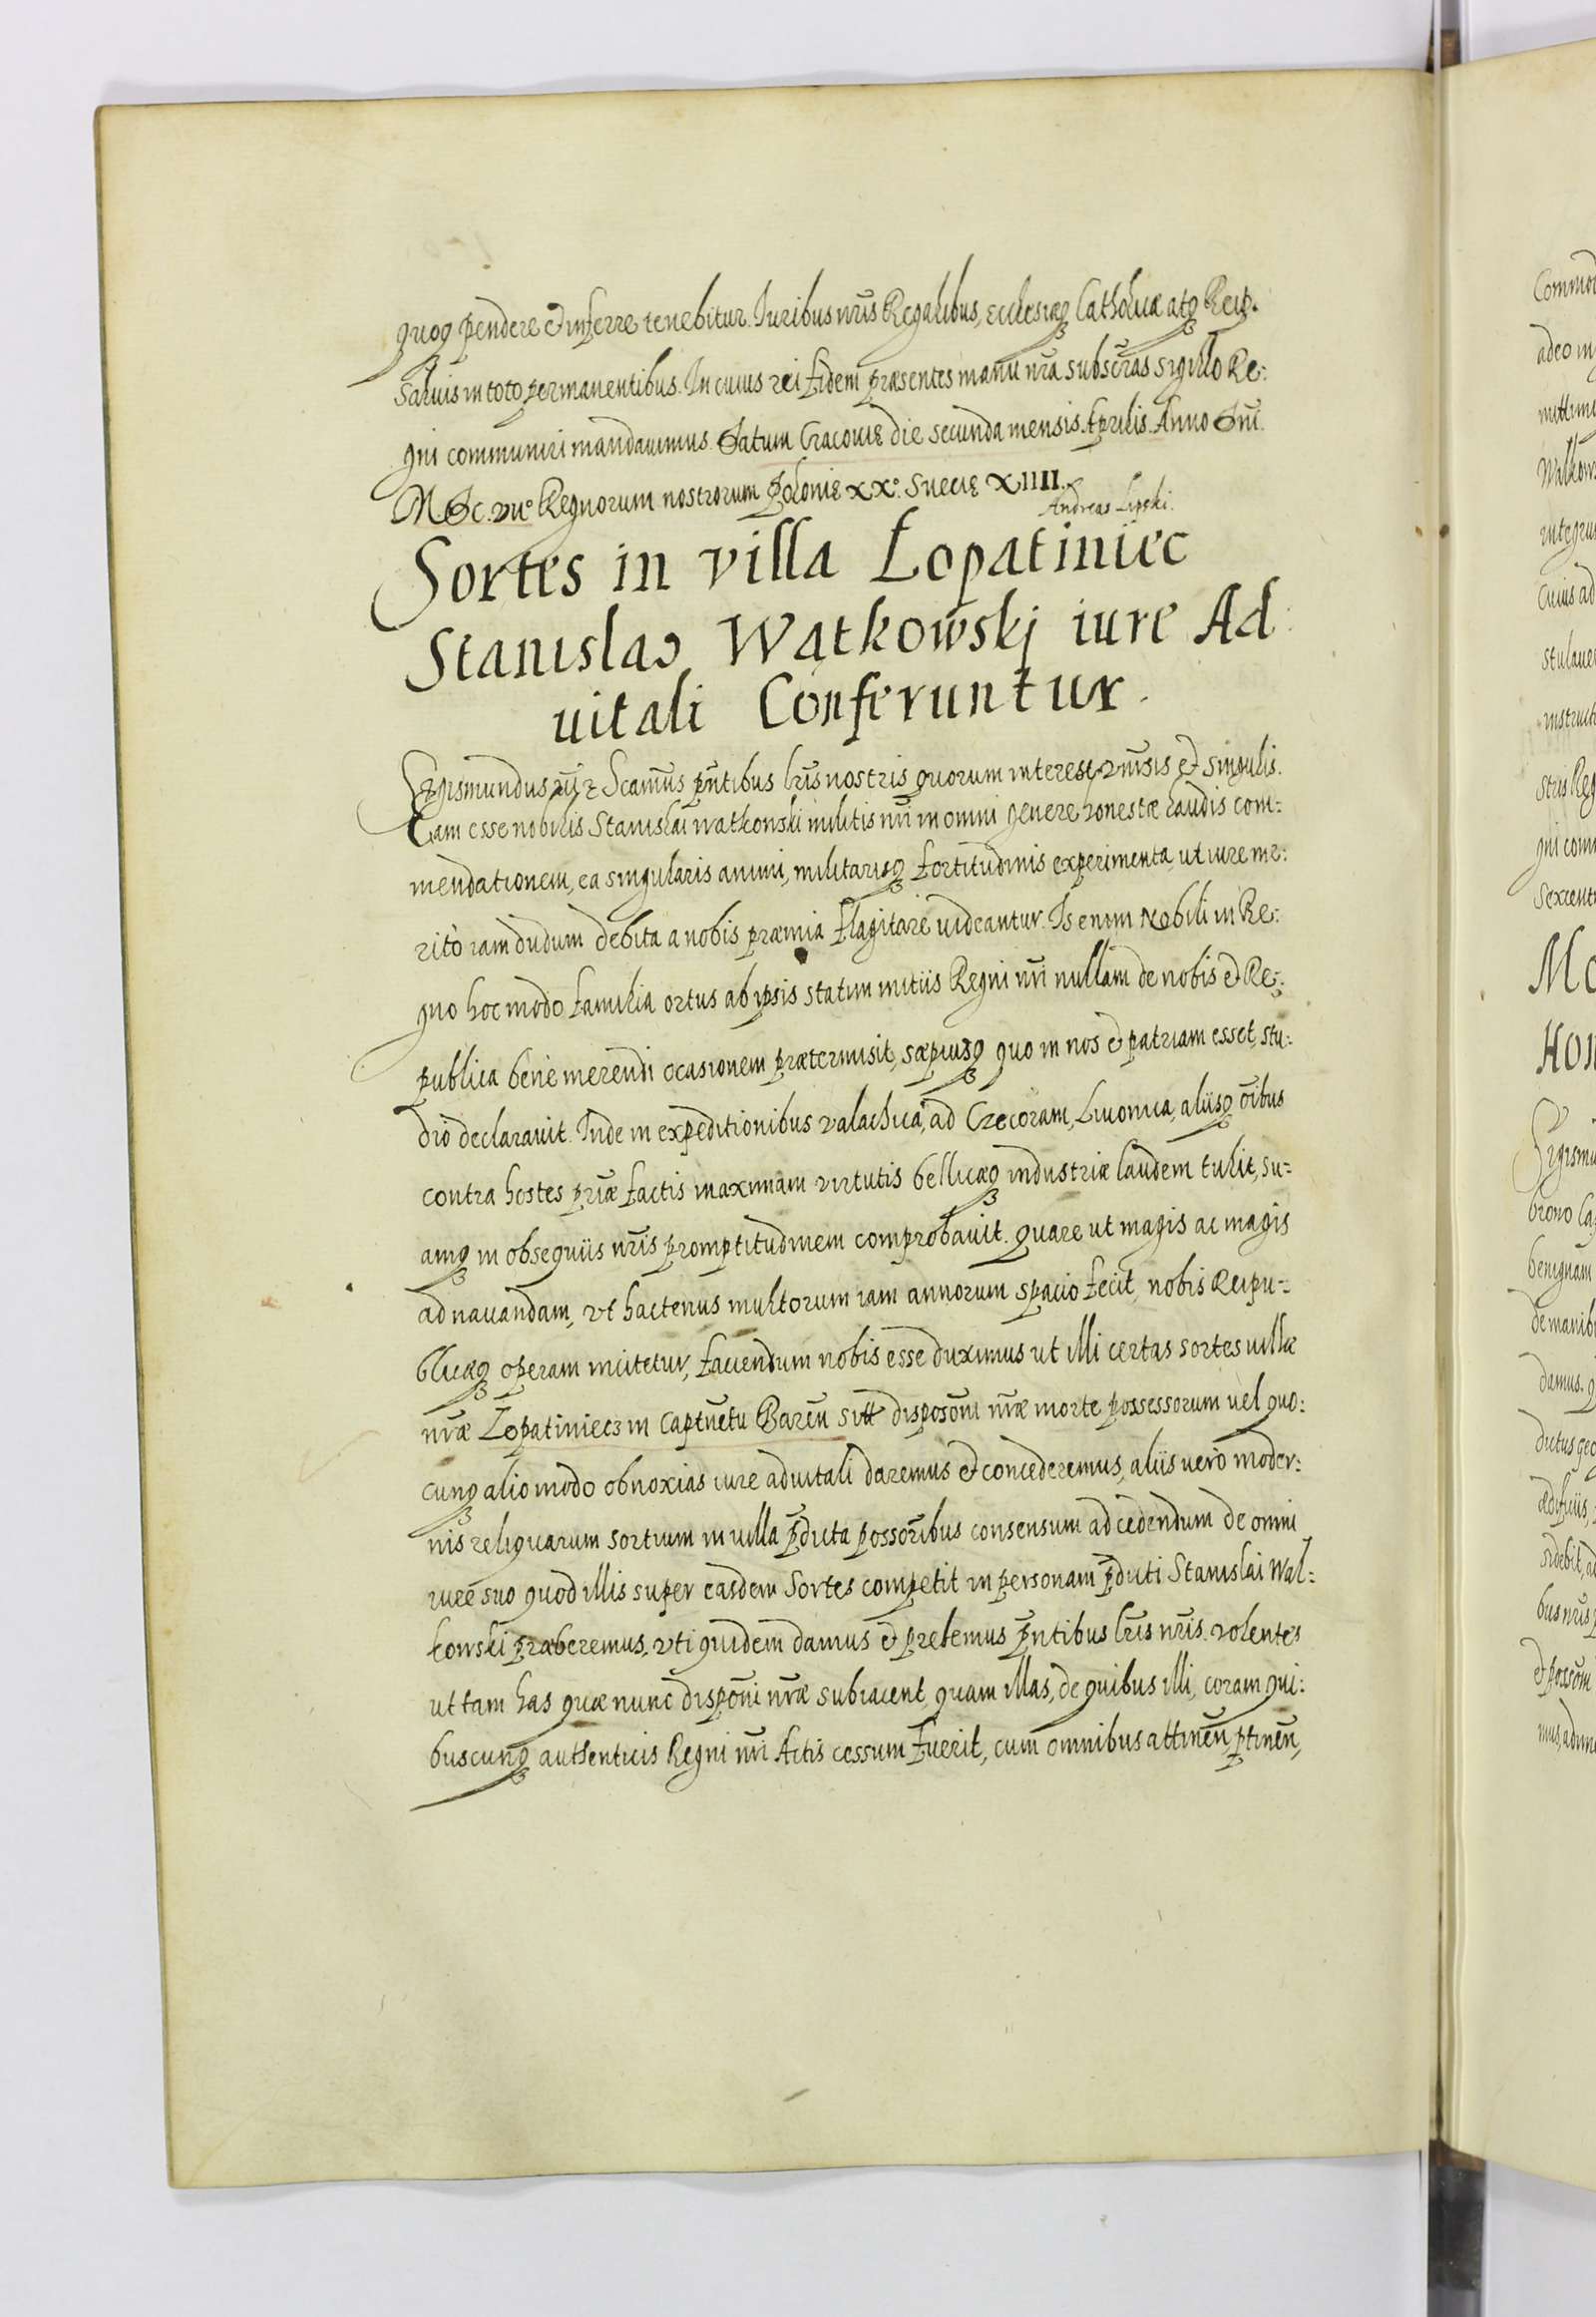 quoq pendere et inferre tenebitur. Iuribus nris Regalibus, Ecclesiæq Catholicæ atq Reip.
Saluis in toto permanentibus. In cuius rei fidem præsentes manu nra subscras sigillo Re:
gni communiri mandauimus. Datum Cracouię die secunda mensis Aprilis. Anno Dni.
M. Dc. vii° Regnorum nostrorum Polonię xx°. Suecię XIIII.
Andreas Lipski.
Sortes in villa Lopatiniec
Stanislao Watkowski iure Ad
uitali Conferuntur.
Sigismundus Scamus pntibus lris nostris quorum interest vnisis et singulis.
Eam esse nobilis Stanislai Watkowski militis nri in omni genere honestæ laudis com:
mendationem, ea singularis animi, militarisq fortitudinis experimenta, ut iure me:
rito iam dudum debita a nobis præmia flagitare uideantur. Is enim Nobili in Re:
gno hoc modo familia ortus ab ipsis statim initiis Regni nri nullam de nobis et Re:
publica bene merendi ocasionem prætermisit, sæpiusq quo in nos et patriam esset, stu:
dio declarauit. Inde in expeditionibus valachica, ad Czecoram, Liuonica, aliisq oibus
contra hostes priæ factis maximam virtutis bellicæq industriæ laudem tulit, su:
amq in obsequiis nris promptitudinem comprobauit. quare ut magis ac magis
ad nauandam, vt hactenus multorum iam annorum spacio fecit, nobis Reipu:
blicæq operam incitetur, faciendum nobis esse duximus ut illi certas sortes uillæ
nræ Lopatiniecz in Captnetu Baren sitt disposoni nræ morte possessorum uel quo:
cunq alio modo obnoxias iure aduitali daremus et concederemus, aliis uero moder:
nis reliquarum sortium in uilla pdicta possoribus consensum ad cedendum de omni
iure suo quod illis super easdem Sortes competit in personam pdicti Stanislai Wat:
kowski præberemus. vti quidem damus et prebemus pntibus lris nris. volentes
ut tam has quæ nunc disponi nræ subiacent, quam illas, de quibus illi, coram qui:
buscunq authenticis Regni nri Actis cessum fuerit, cum omnibus attinen, ptinen,